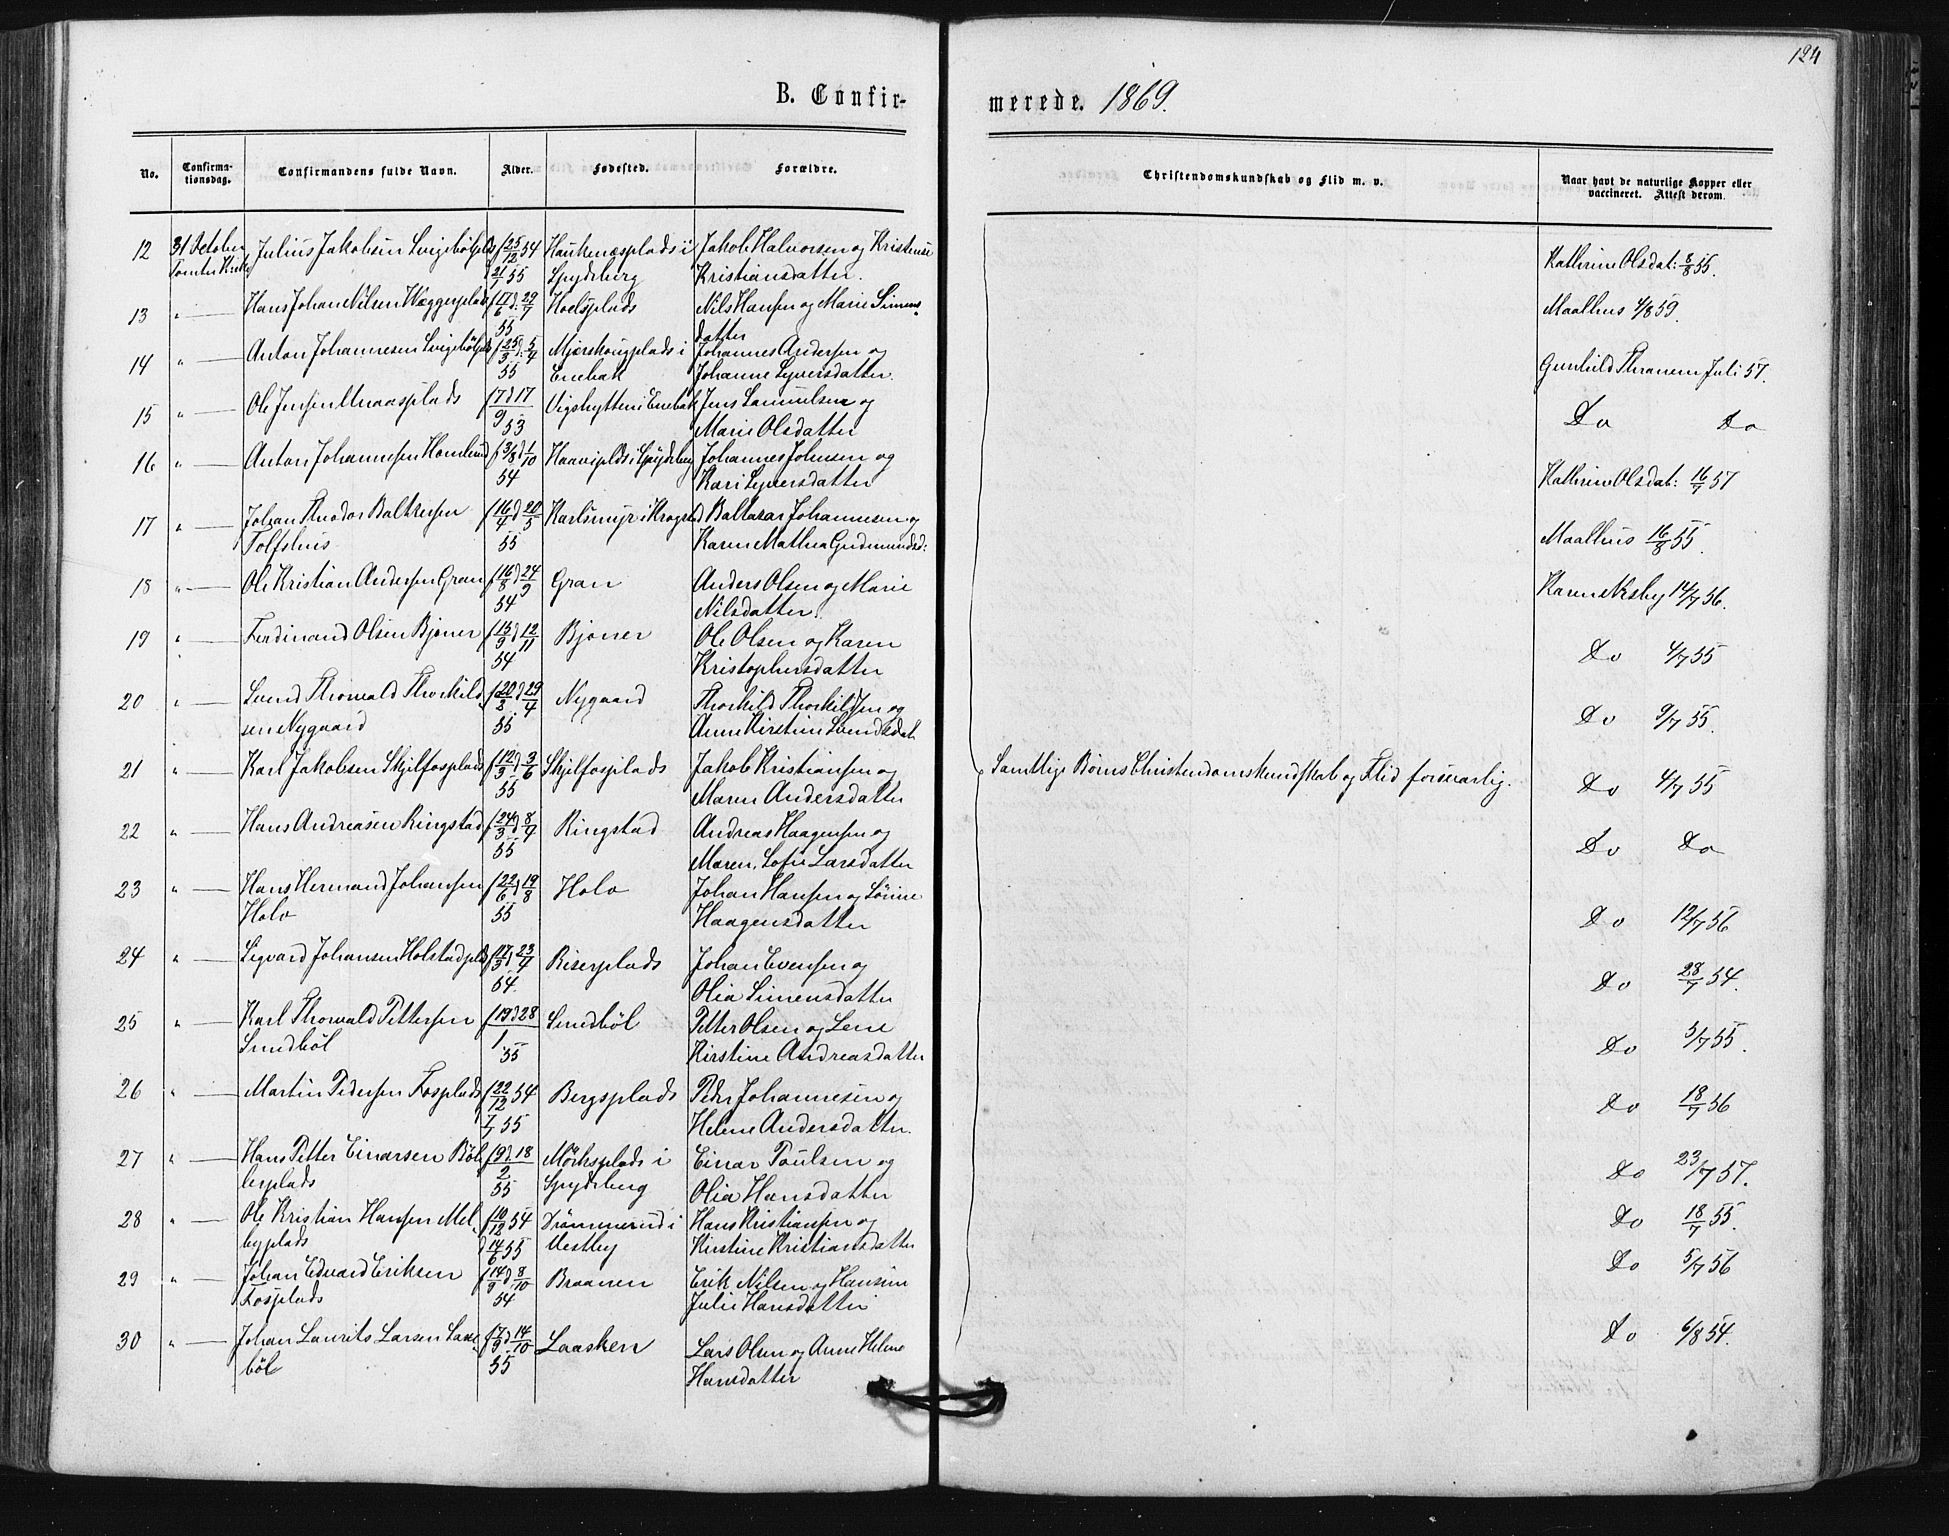 124
B. Confirmerede. 1869.
No. Confirmationsdag. Confirmandens fulde Navn. Alder. Fødested. Forældre. Christendomskundskab og Flid m. v. Naar havt de naturlige Kopper eller vaccineret. Attest derom.
12 31 October Julius Jakobsen f 25/12 54 Hauknæsplads i Jakob Halvorsen og Kristense Kathrine Olsdat: 8/8 55.
Tomter Kirke 55 Spydeberg Kristiansdatter.
13 " Hans Johan Nilsen f 17/6 d. 29/7 Hoelsplads Nils Hansen og Marie Simens- Maalhus 4/8 59.
55 datter
14 " Anton Johannesen f 25/3 d. 5/4 Mjærskougplads i Johannes Andersen og Gunhild Thranem Juli 57.
55 Enebak Johanne Syversdatter.
15 " Ole Jensen f 7 d 17 Vigshytten i Enebak Jens Samuelsen og Do Do
9 53 Marie Olsdatter
16 " Anton Johannesen Homlund f 3/8 d 1/10 Haaviplds i Spydeberg Johannes Johnsen og Kathrine Olsdat: 16/7 57
54 Kari Syversdatter
17 " Johan Theodor Baltsersen f 16/4 d 20/5 Karlsmyr i Krogstad Baltazar Johannesen og Maalhus 16/8 55.
Tolfshus 55 Karen Mathea Gudmundsd:
18 " Ole Kristian Andersen Gran f 16/8 d 24/9 Gran Anders Olsen og Marie Karen 14/7 56.
54 Nilsdatter.
19 " Ferdinand Olsen Bjøner f 15/9 d 12/11 Bjøner Ole Olsen og Karen Do 4/7 55
54 Kristophersdatter
20 " Svend Thorvald Thorkild- f 20/3 d 29/4 Nygaard Thorkild Thorkildsen og Do 9/7 55.
sen Nygaard 55 Anne Kirstine Svendsdat
21 " Karl Jakobsen Skjelfosplads f 12/3 d. 3/6 Skjelfosplads Jakob Kristiansen og Samtlige Børns Christendomskundskab og Flid forsvarlig. Do 4/7 55
55 Maren Andersdatter
22 " Hans Andreasen Ringstad f 24/3 d 8/4 Ringstad Andreas Haagensen og Do Do
55 Maren Sofie Larsdatter
23 " Hans Hermand Johansen f 22/6 d 19/8 Holo Johan Hansen og Sørine Do 12/7 56
Holo 55 Haagensdatter
24 " Sigvard Johansen Holstadplds f 17/3 d 23/4 Riserplads Johan Evensen og Do 28/7 54.
54. Olia Simensdatter
25 " Karl Thorvald Pettersen f 19 d 28 Smedbøl Petter Olsen og Lene Do 5/7 55.
Smedbøl 1 55 Kirstine Andreasdatter
26 " Martin Pedersen Fosplads f 22/12 54 Bergsplads Peder Johannesen og Do 18/7 56
7/ 55 Helene Andersdatter.
27 " Hans Petter Einarsen Bøl- f 9 d. 18 Mørksplads i Einar Poulsen og Do 23/7 57.
lerplads 2 55 Spydeberg Olia Hansdatter
28 " Ole Kristian Hansen Mel- f 10/12 54 Drømmerud i Hans Kristiansen og Do 18/7 55.
byplads d 14/6 55 Vestby Kirstine Kristiansdatter
29 " Johan Edvard Eriksen f 14/9 d 8/10 Braanen Erik Nilsen og Hansine Do 5/7 56
Fosplads 54 Julie Hansdatter
30 " Johan Laurits Larsen f 17/9 d. 14/10 Laasken Lars Olsen og Anne Helene Do 6/8 54.
bøl 55 Hansdatter